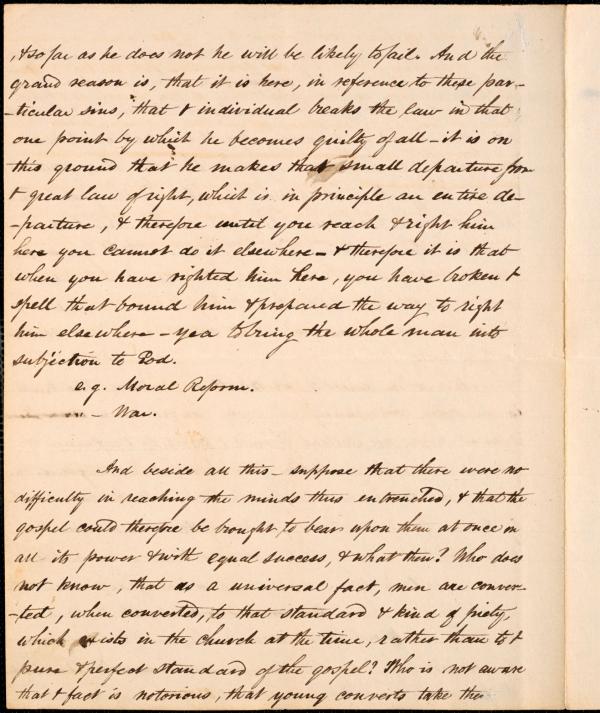 , & so far as he does not he will be likely to fail. And the
grand reason is, that it is here, in reference to these par-
-ticular sins, that t individual breaks the law in that
one point by which he becomes guilty of all – it is on
this ground that he makes that small departure from
t great law of right, which is in principle an entire de-
-parture, & therefore until you reach & right him
here you cannot do it elsewhere – & therefore it is that
when you have righted him here, you have broken t
spell that bound him & prepared the way to right
him elsewhere – yea to bring the whole man into
subjection to God.
e.g. Moral Reform.
" – War.
And beside all this – suppose that there were no
difficulty in reaching the minds thus entrenched, & that the
gospel could therefore be brought to bear upon them at once in
all its power & with equal success, & what then? Who does
not know, that as a universal fact, men are conver-
-ted, when converted, to that standard & kind of piety,
which exists in the church at the time, rather than to t
pure & perfect standard of the gospel? Who is not aware
that t fact is notorious, that young converts take the